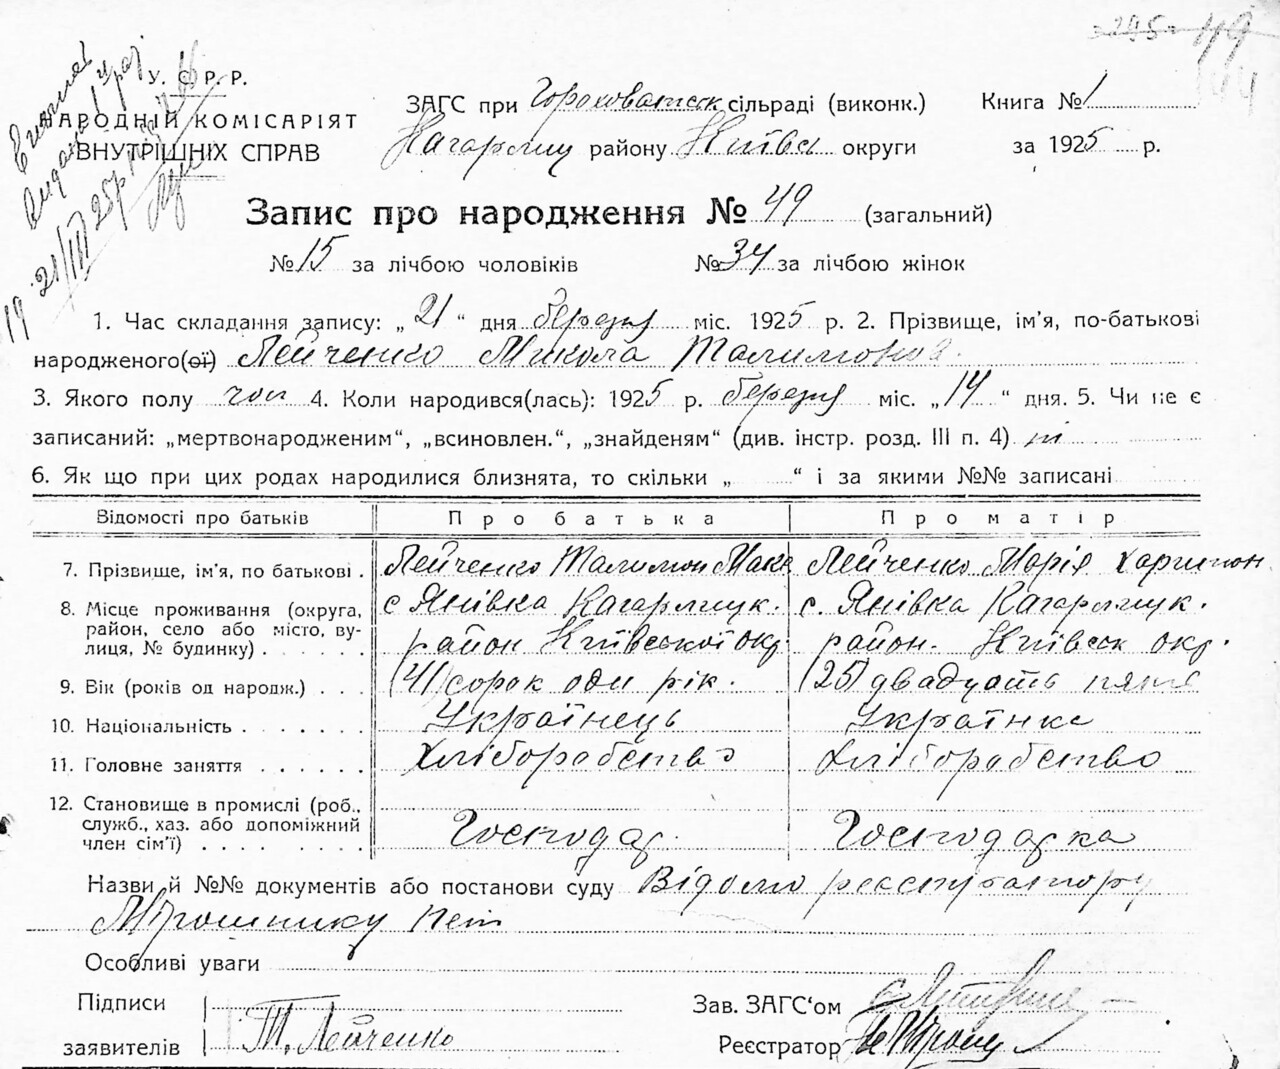 295 49
144
У. С. Р. Р.
НАРОДНІЙ КОМІСАРІЯТ
ВНУТРІШНІХ СПРАВ
21/III 25р
19
ЗАГС при Гороховатськ сільраді (виконк.)
Кагарлиц району Київськ округи
Книга № 1
за 1925 р.
Запис про народження № 49 (загальний)
№ 15 за лічбою чоловіків № 34 за лічбою жінок
1. Час складання запису: „ 21 “ дня березня міс. 1925 р. 2. Прізвище, ім’я, по-батькові
народженого(ої) Лейченко Микола Талимонов.
3. Якого полу чол 4. Коли народився(лась): 1925 р. березня міс. „ 14 “ дня. 5. Чи не є
записаний: „мертвонародженим“, „всиновлен.“, „знайденям“ (див. інстр. розд. III п. 4) ні
6. Як що при цих родах народилися близнята, то скільки „ “ і за якими №№ записані
Відомості про батьків Про батька Про матір
7. Прізвище, ім’я, по батькові . Лейченко Талимон Мака Лейченко Марія Харитон
8. Місце проживання (округа, с Янівка Кагарлицк. с. Янівка Кагарлицк.
район, село або місто, ву-
лиця, № будинку) . . . . . . район Київської окр. район. Київськ окр.
9. Вік (років од народж.) . . . (41) сорок оди рік. (25) двадцять пять
10. Національність . . . . . . . Українець Українка
11. Головне заняття . . . . . . Хліборобство Хліборобство
12. Становище в промислі (роб.,
служб., хаз. або допоміжний
член сім’ї) . . . . . . . . . Господар. Господарка
Назви й №№ документів або постанови суду Відомо реєстратору
Мірошнику Пет
Особливі уваги
Підписи
заявителів Т. Лейченко
Зав. ЗАГС‘ом
Реєстратор